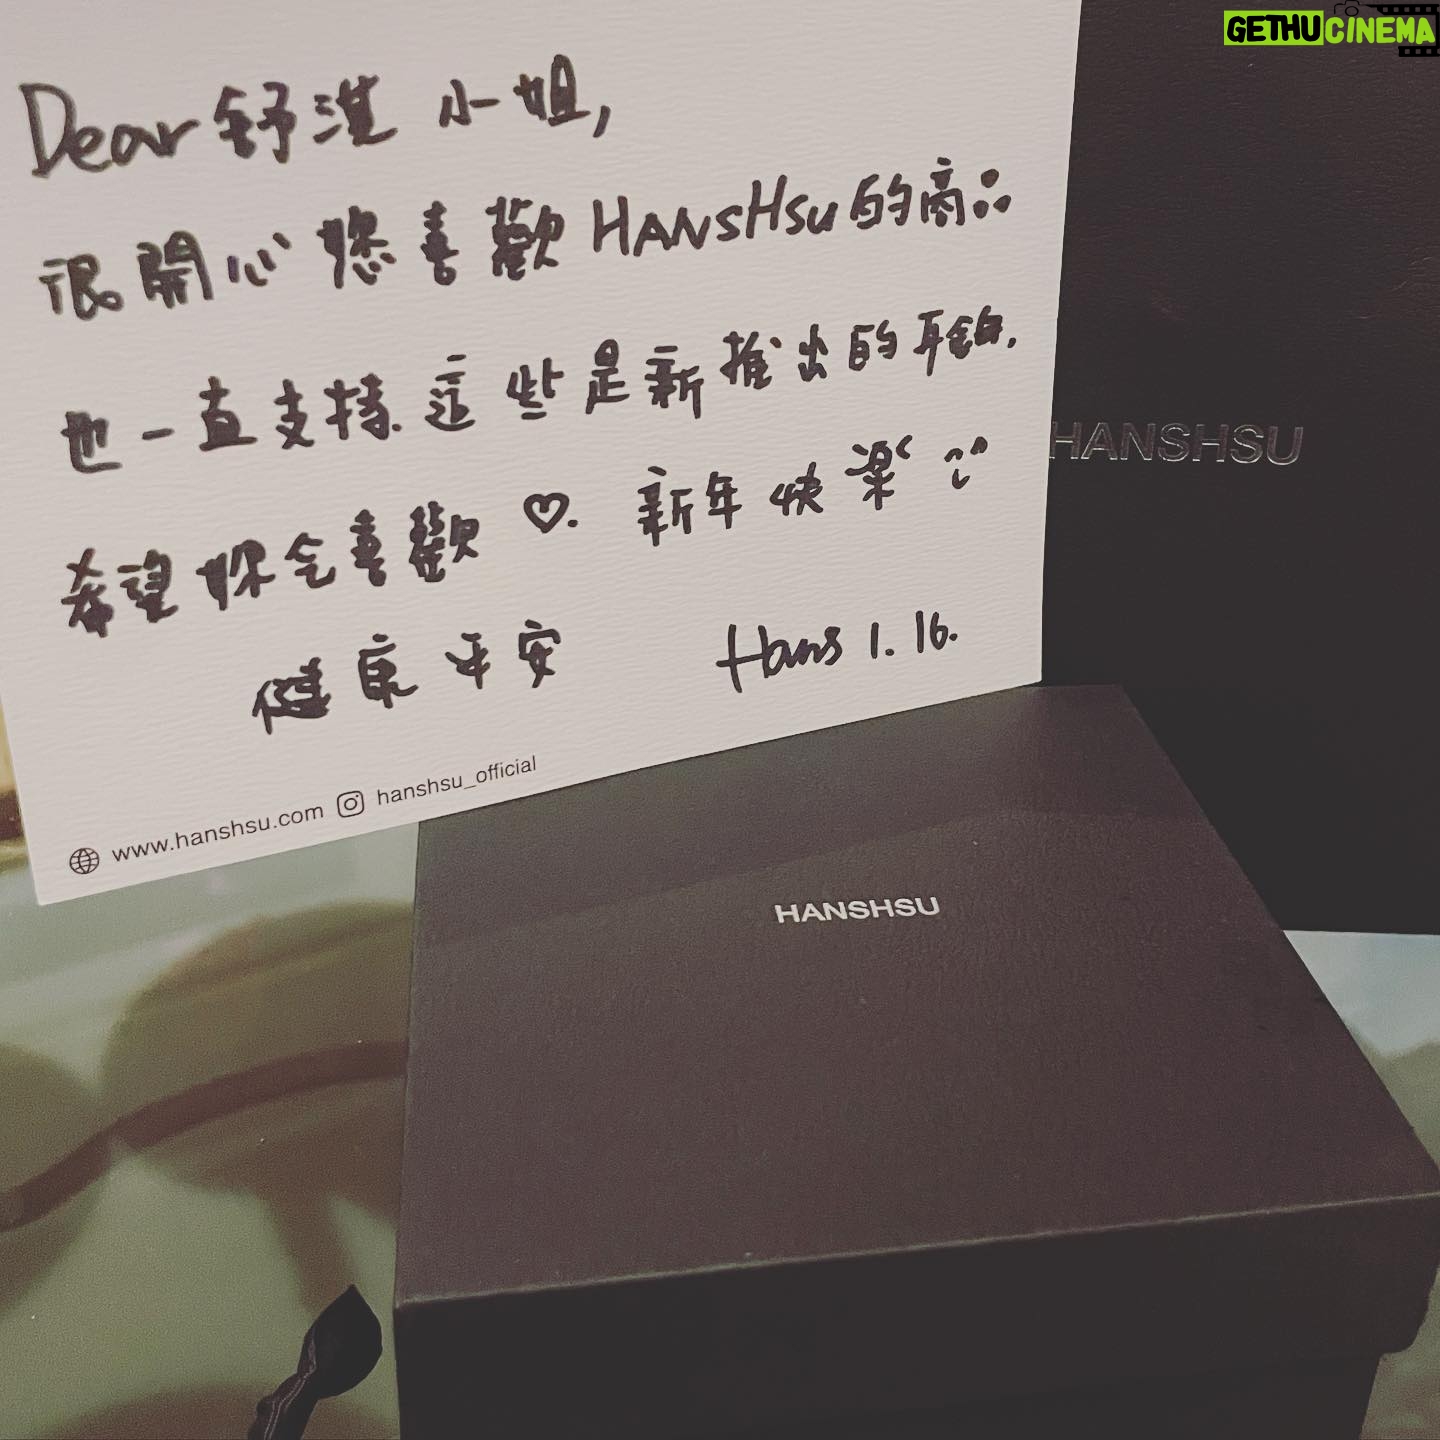 GETHUCINEMA
Dear 舒淇 小姐,
很開心 您喜歡 HANSHSU的商品
也一直支持.這些是新推出的耳飾,
希望妳会喜歡 ♡. 新年快樂
健康平安 Hans 1.16.
www.hanshsu.com hanshsu_official
HANSHSU
HANSHSU